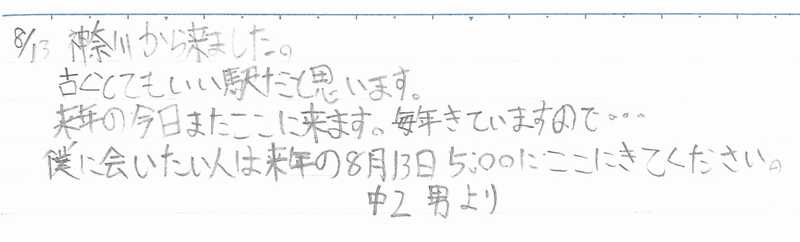 8/13 神奈川から来ました。
古くてとてもいい駅だと思います。
来年の今日またここに来ます。毎年きていますので…
僕に会いたい人は来年の8月13日5:00にここにきてください。
中2 男より